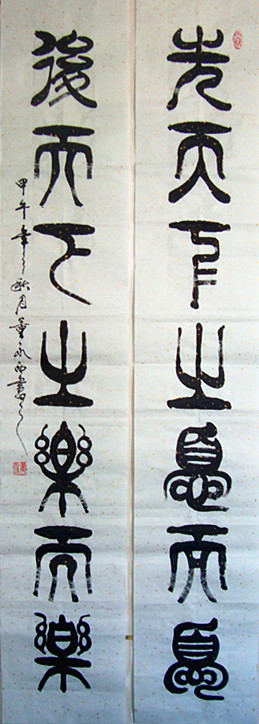 先天下之憂而憂
後天下之樂而樂
甲午年秋月董永西書